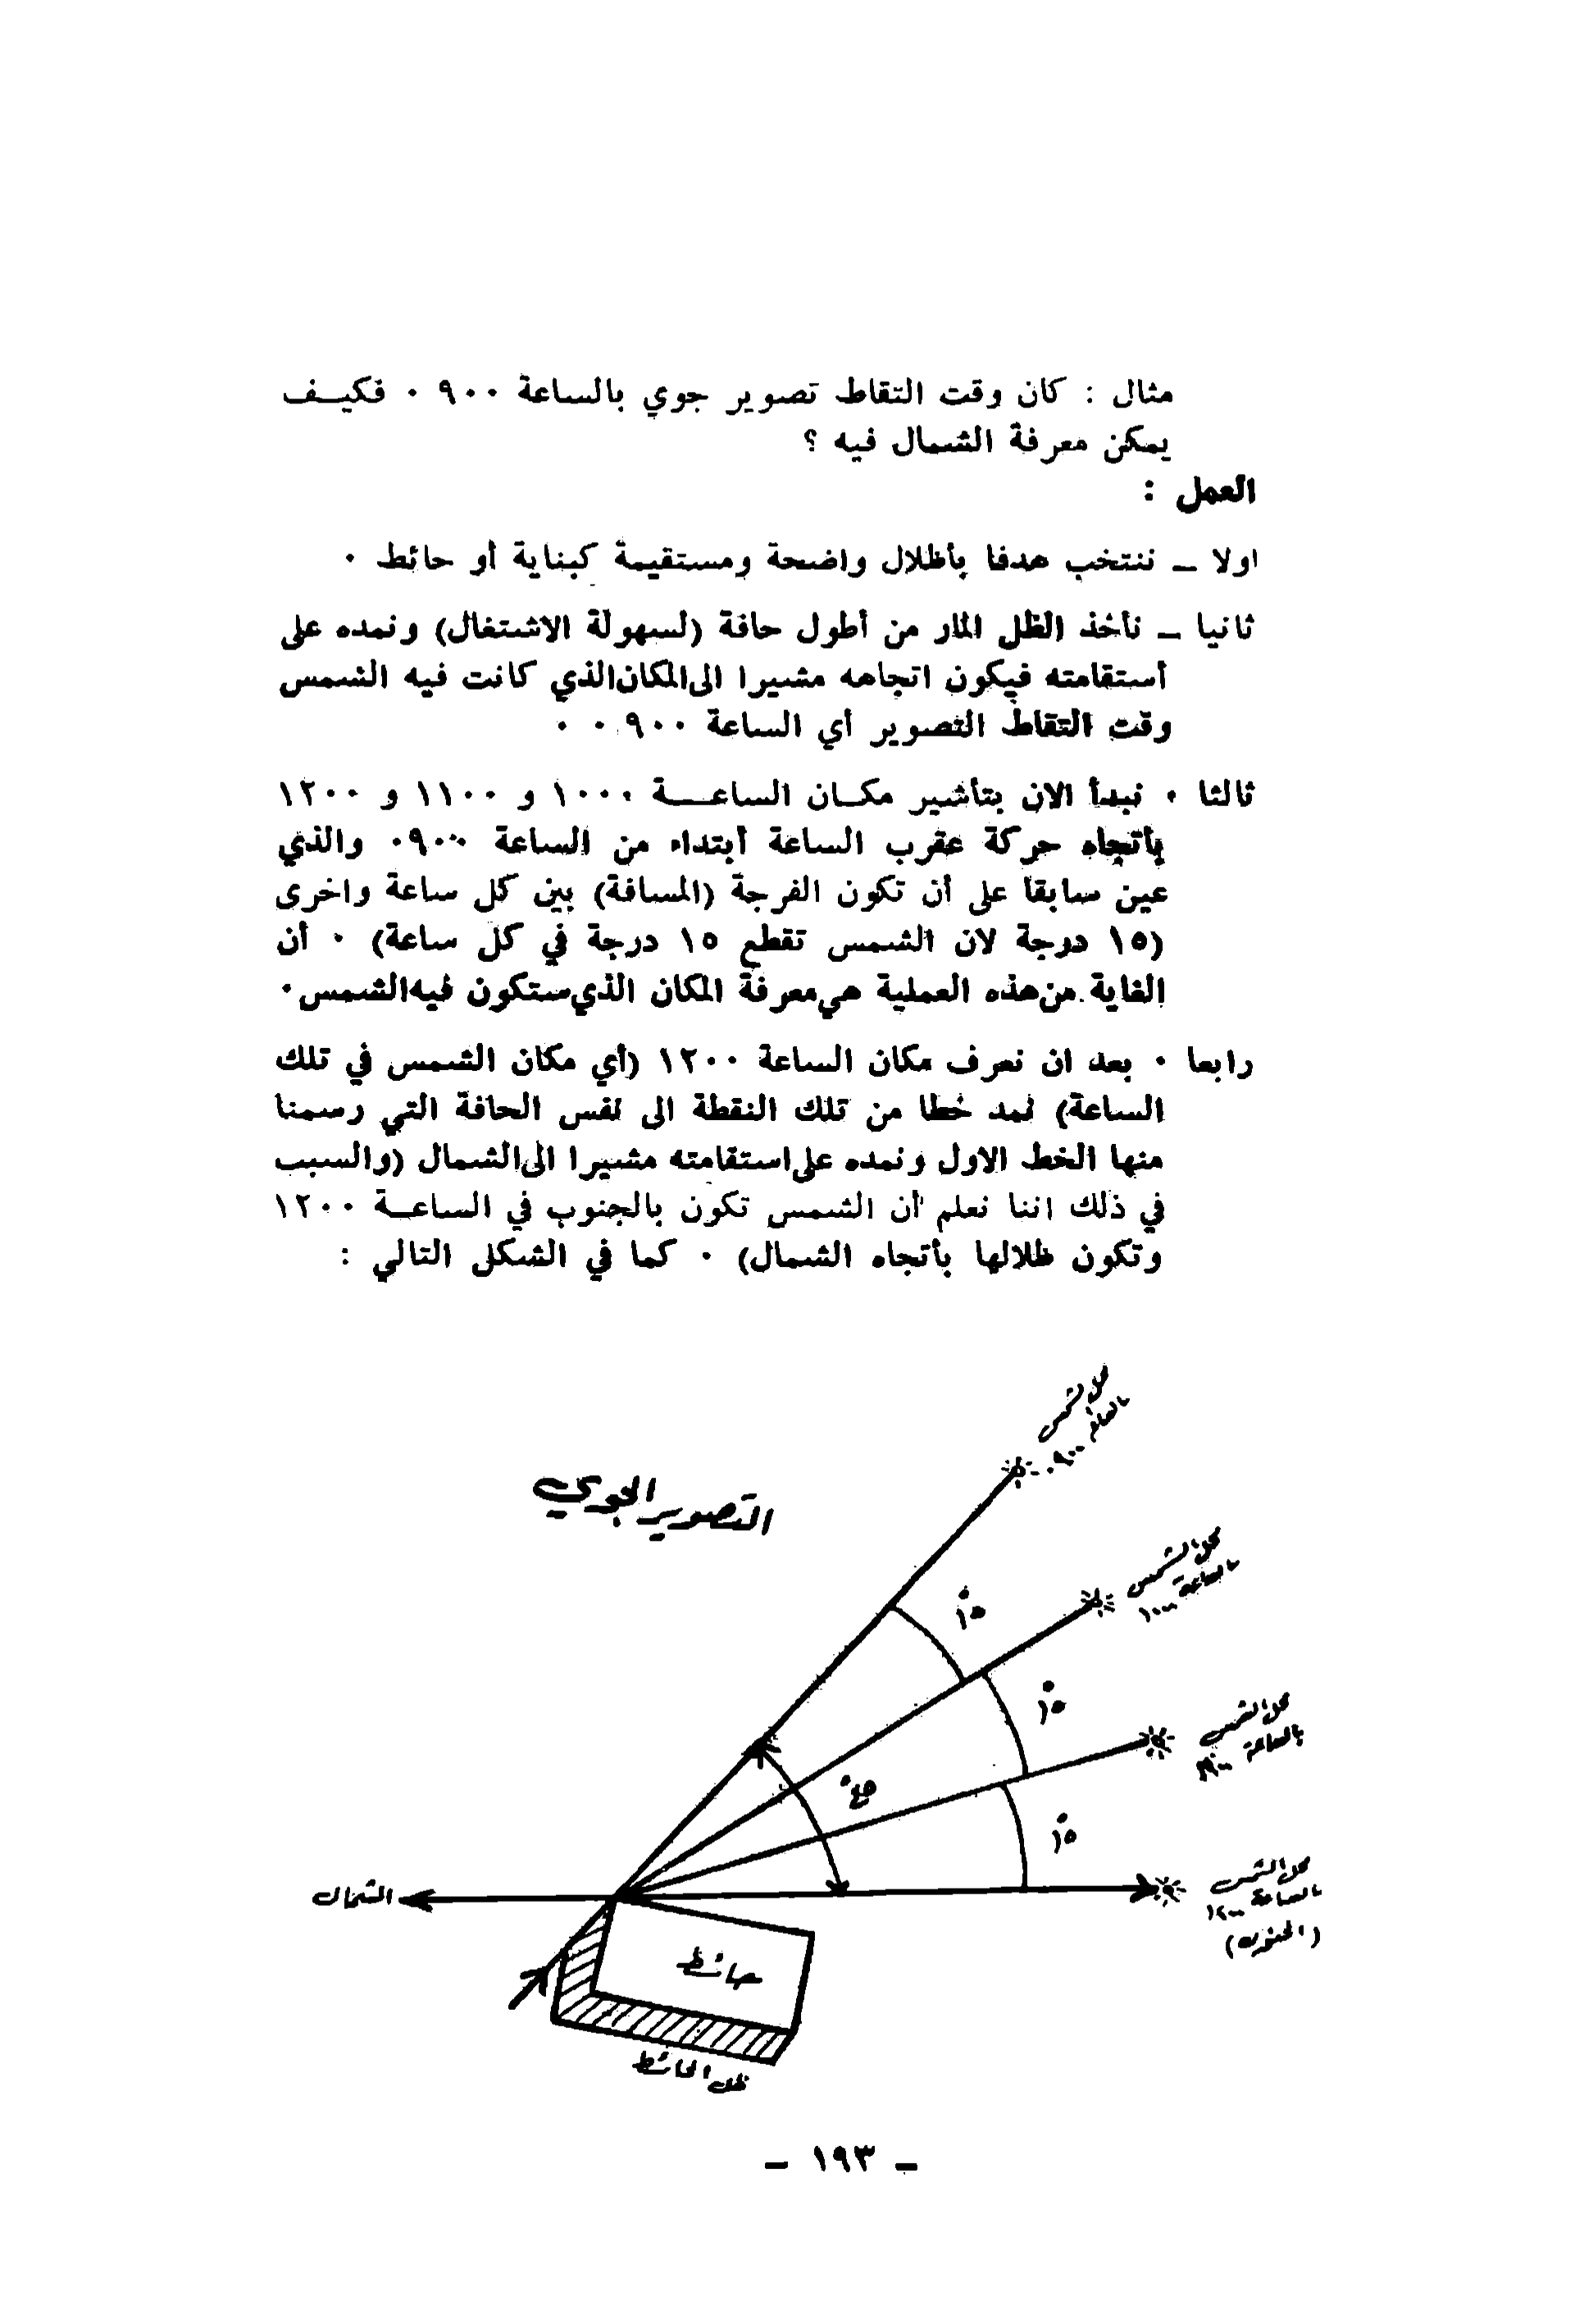 مثال : كان وقت التقاط تصوير جوي بالساعة ٠٩٠٠ فكيف
يمكن معرفة الشمال فيه ؟
العمل :
اولا ـ ننتخب هدفا بأظلال واضحة ومستقيمة كبناية أو حائط ٠
ثانيا ـ نأخذ الظل المار من أطول حافة (لسهولة الاشتغال) ونمده على
أستقامته فيكون اتجاهه مشيرا الى المكان الذي كانت فيه الشمس
وقت التقاط التصوير أي الساعة ٠٩٠٠ ٠
ثالثا ٠ نبدأ الان بتأشير مكان الساعة ١٠٠٠ و ١١٠٠ و ١٢٠٠
بأتجاه حركة عقرب الساعة أبتداء من الساعة ٠٩٠٠ والذي
عين سابقا على أن تكون الفرجة (المسافة) بين كل ساعة واخرى
(١٥ درجة لان الشمس تقطع ١٥ درجة في كل ساعة) ٠ أن
الغاية من هذه العملية هي معرفة المكان الذي ستكون فيه الشمس ٠
رابعا ٠ بعد ان نعرف مكان الساعة ١٢٠٠ (أي مكان الشمس في تلك
الساعة) نمد خطا من تلك النقطة الى نفس الحافة التي رسمنا
منها الخط الاول ونمده على استقامته مشيرا الى الشمال (والسبب
في ذلك اننا نعلم أن الشمس تكون بالجنوب في الساعة ١٢٠٠
وتكون ظلالها بأتجاه الشمال) ٠ كما في الشكل التالي :
محل الشمس
بالساعة ٠٩٠٠
التصوير الجوي
محل الشمس
بالساعة ١٠٠٠
١٥°
١٥°
محل الشمس
بالساعة
٤٥°
١٥°
محل الشمس
بالساعة ١٢٠٠
(الجنوب)
الشمال
حائط
ظل الحائط
ـ ١٩٣ ـ